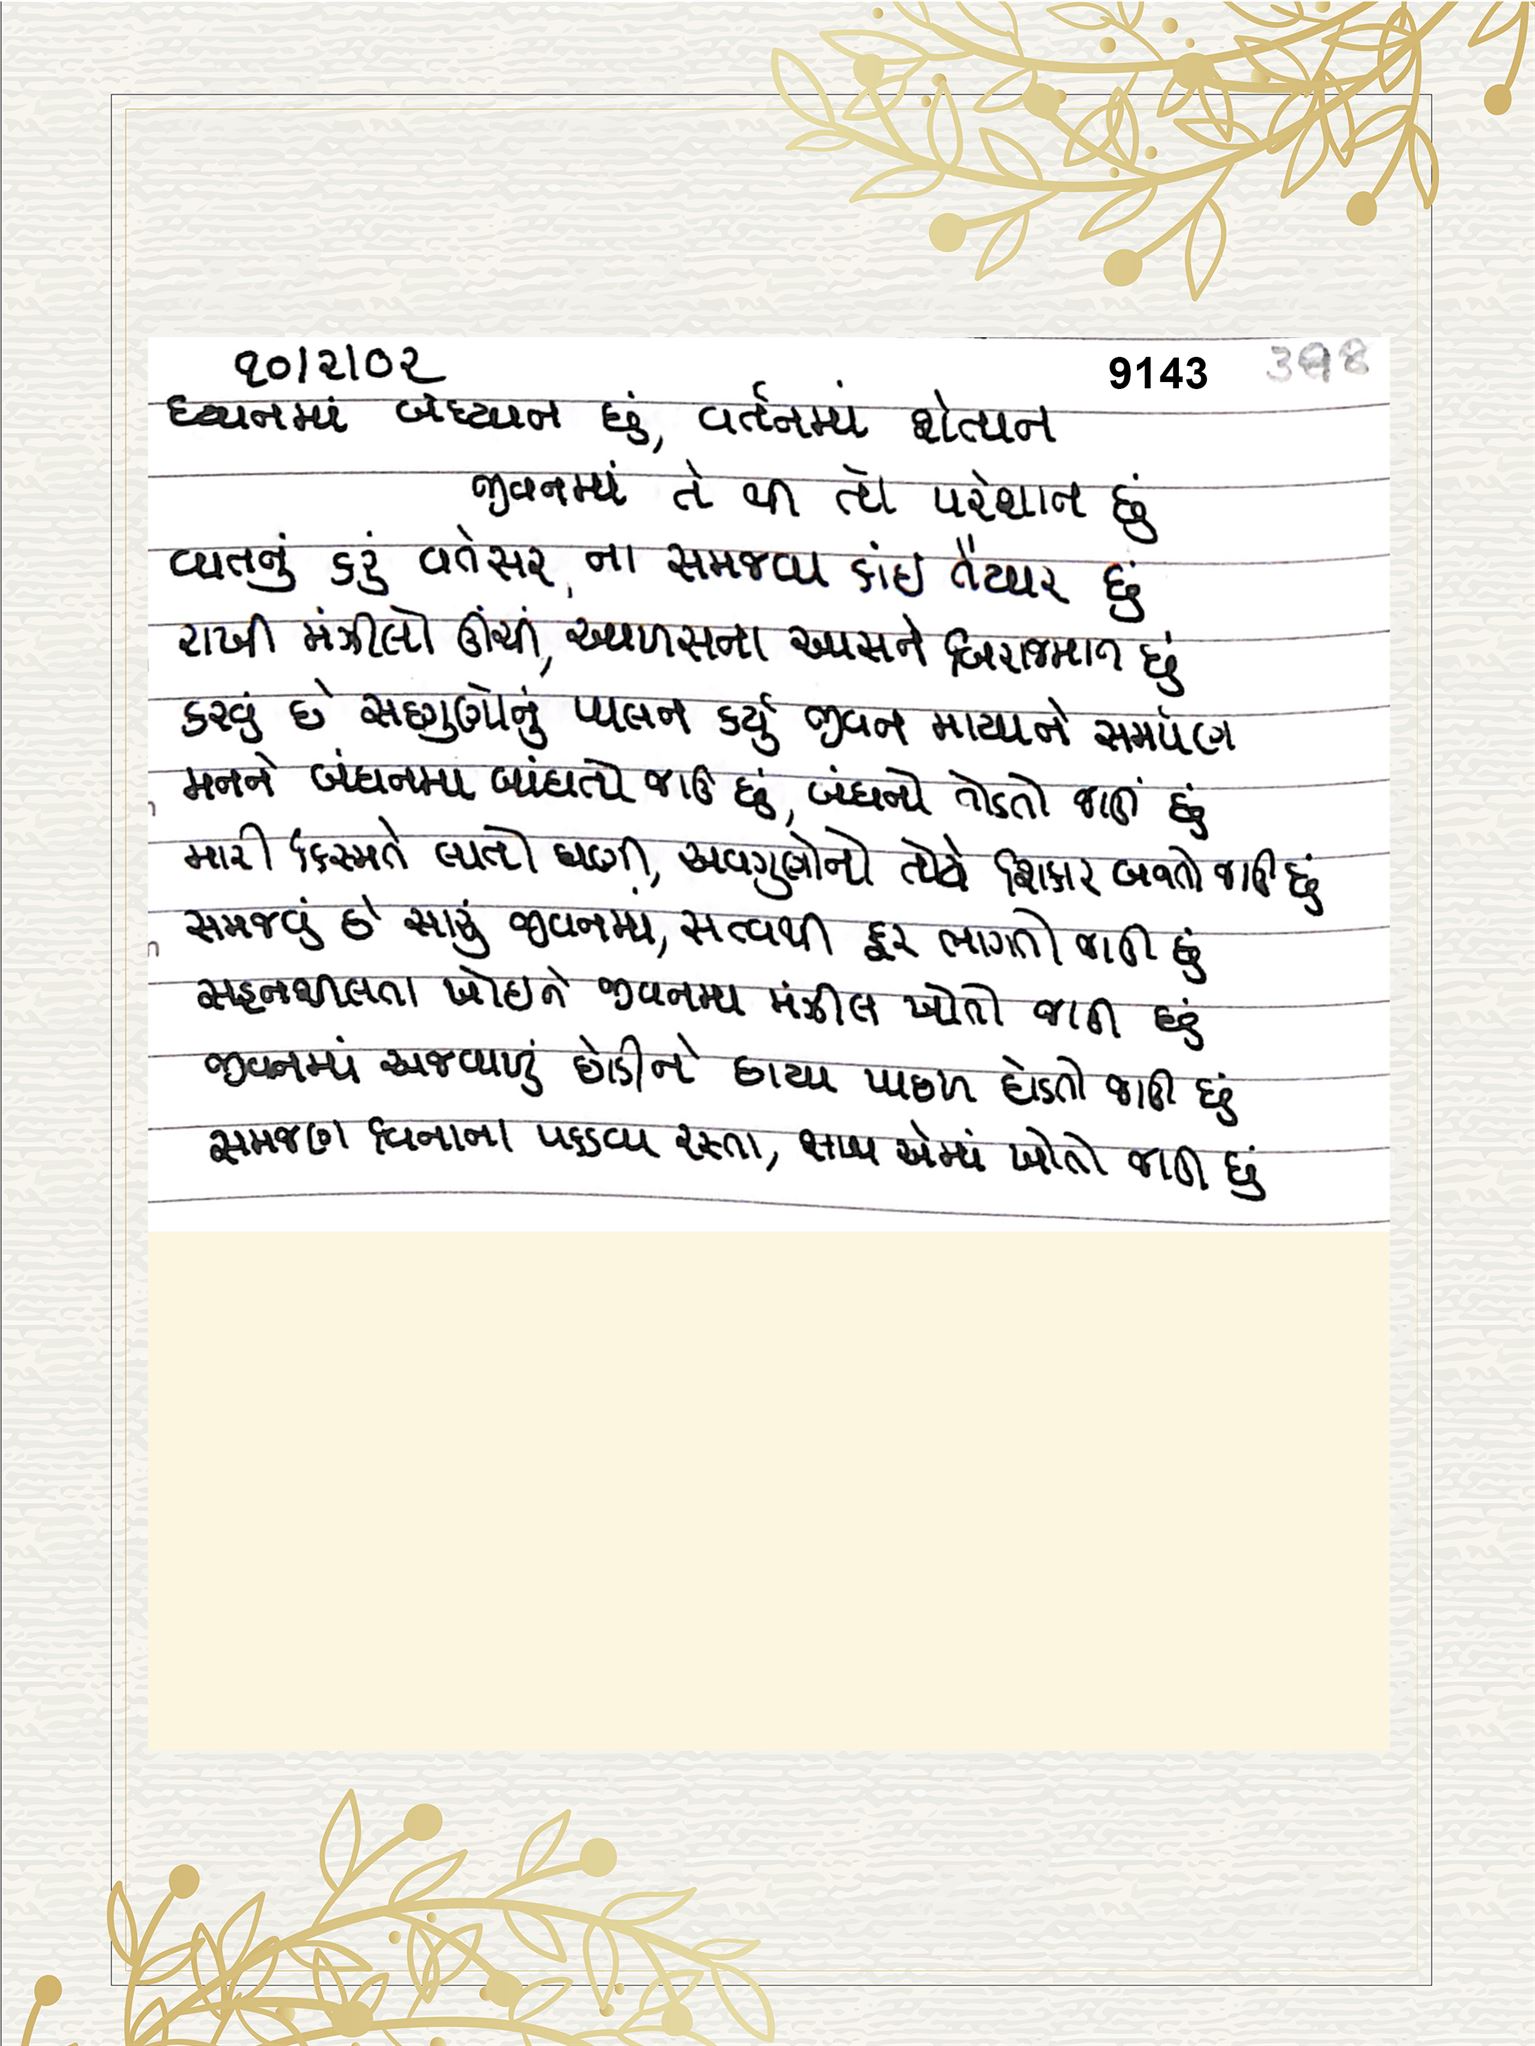 ૧૦/૨/૦૨ 9143
ધ્યાનમાં બેધ્યાન છું, વર્તનમાં શેતાન
જીવનમાં તે થી તો પરેશાન છું
વાતનું કરું વતેસર, ના સમજવા કાંઈ તૈયાર છું
રાખી મંઝીલો ઊંચી, આળસના આસને બિરાજમાન છું
કરવું છે સદગુણોનું પાલન કર્યું જીવન માયાને સમર્પણ
મનને બંધનમા બાંધતો જાઉં છું, બંધનો તોડતો જાઉં છું
મારી કિસ્મતે લાતો ઘણી, અવગુણોનો તોયે શિકાર બનતો જાઉં છું
સમજવું છે સારું જીવનમાં, સત્વથી દૂર ભાગતો જાઉં છું
સહનશીલતા ખોઈને જીવનમાં મંઝીલ ખોતો જાઉં છું
જીવનમાં અજવાળું છોડીને છાયા પાછળ દોડતો જાઉં છું
સમજણ વિનાના પકડવા રસ્તા, સાથ એમાં ખોતો જાઉં છું